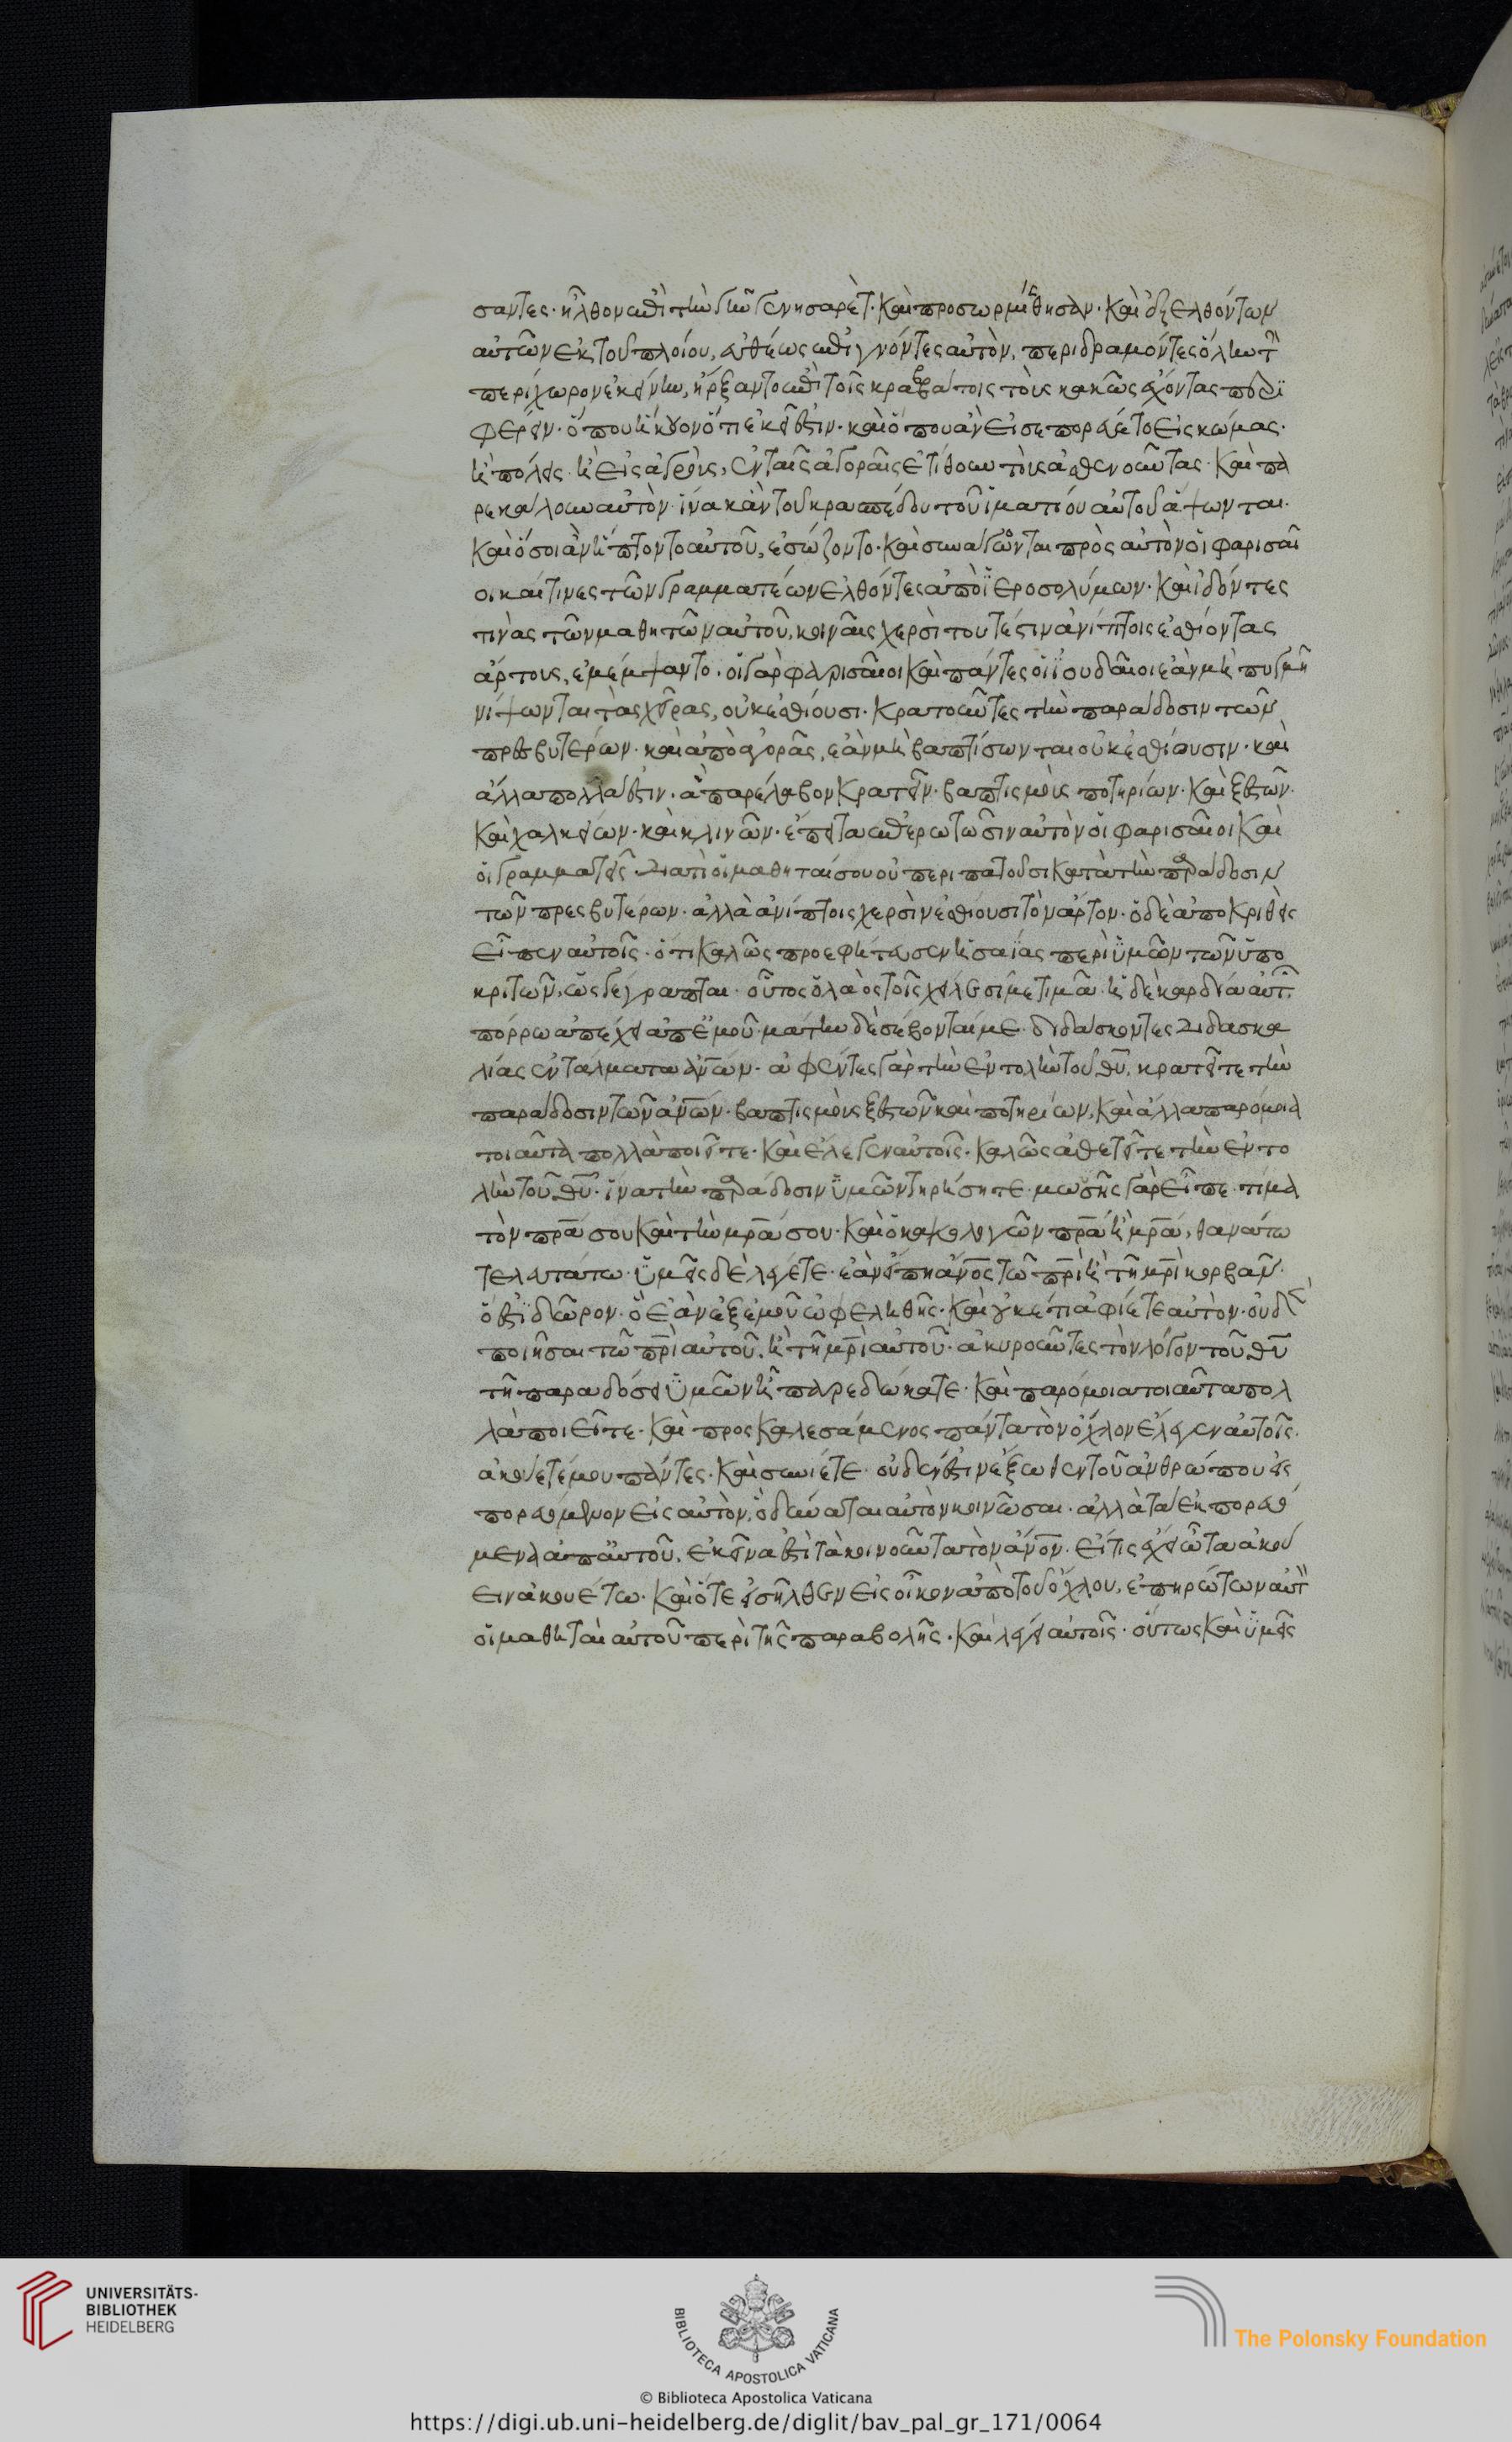 σαντες· ἦλθον ἐπὶ τὴν γῆν γεννησαρὲτ· καὶ προσωρμίσθησαν· καὶ ἐξελθόντων
αὐτῶν ἐκ τοῦ πλοίου, εὐθέως ἐπιγνόντες αὐτὸν, περιδραμόντες ὅλην τὴν
περίχωρον ἐκείνην, ἤρξαντο ἐπὶ τοῖς κραββάτοις τοὺς κακῶς ἔχοντας περι
φέρειν· ὅπου ἤκουον ὅτι ἐκεῖ ἐστιν· καὶ ὅπου ἂν εἰσεπορεύετο εἰς κώμας·
ἢ πόλεις· ἢ εἰς ἀγροὺς, ἐν ταῖς ἀγοραῖς ἐτίθουν τοὺς ἀσθενοῦντας· καὶ πα
ρεκάλουν αὐτὸν· ἵνα κἂν τοῦ κρασπέδου τοῦ ἱματίου αὐτοῦ ἅψωνται·
καὶ ὅσοι ἂν ἥπτοντο αὐτοῦ, ἐσώζοντο· καὶ συνάγονται πρὸς αὐτὸν οἱ φαρισαῖ
οι καί τινες τῶν γραμματέων ἐλθόντες ἀπὸ ἱεροσολύμων· καὶ ἰδόντες
τινὰς τῶν μαθητῶν αὐτοῦ, κοιναῖς χερσὶ τουτέστιν ἀνίπτοις ἐσθίοντας
ἄρτους, ἐμέμψαντο· οἱ γὰρ φαρισαῖοι καὶ πάντες οἱ ἰουδαῖοι ἐὰν μὴ πυγμῆ
νίψωνται τὰς χεῖρας, οὐκ ἐσθίουσι· κρατοῦντες τὴν παράδοσιν τῶν
πρεσβυτέρων· καὶ ἀπὸ ἀγορᾶς, ἐὰν μὴ βαπτίσωνται οὐκ ἐσθίουσιν· καὶ
ἄλλα πολλά ἐστιν· ἃ παρέλαβον κρατεῖν· βαπτισμοὺς ποτηρίων· καὶ ξεστῶν·
καὶ χαλκείων· καὶ κλινῶν· ἔπειτα ἐπερωτῶσιν αὐτὸν οἱ φαρισαῖοι καὶ
οἱ γραμματεῖς· διατὶ οἱ μαθηταί σου οὐ περιπατοῦσι κατὰ τὴν παράδοσιν
τῶν πρεσβυτέρων· ἀλλὰ ἀνίπτοις χερσὶν ἐσθίουσι τὸν ἄρτον· ὁ δὲ ἀποκριθεὶς
εἶπεν αὐτοῖς· ὅτι καλῶς προεφήτευσεν ἠσαΐας περὶ ὑμῶν τῶν ὑπο
κριτῶν, ὡς γέγραπται· οὗτος ὁ λαὸς τοῖς χείλεσί με τιμᾶ· ἡ δὲ καρδία αὐτῶν
πόρρω ἀπέχει ἀπ' ἐμοῦ· μάτην δὲ σέβονταί με· διδάσκοντες διδασκα
λίας ἐντάλματα ἀν̅ων· ἀφέντες γὰρ τὴν ἐντολὴν τοῦ θυ̅, κρατεῖτε τὴν
παράδοσιν τῶν ἀν̅ων· βαπτισμοὺς ξεστῶν καὶ ποτηρίων, καὶ ἄλλα παρόμοια
τοιαῦτα πολλὰ ποιεῖτε· καὶ ἔλεγεν αὐτοῖς· καλῶς ἀθετεῖτε τὴν ἐντο
λὴν τοῦ θυ̅· ἵνα τὴν παράδοσιν ὑμῶν τηρήσητε· μωσῆς γὰρ εἶπε· τίμα
τὸν πρ̅α σου καὶ τὴν μρ̅α σου· καὶ ὁ κακολογῶν πρ̅α ἢ μρ̅α, θανάτω
τελευτάτω· ὑμεῖς δὲ λέγετε· ἐὰν εἴπη ἄν̅ος τῶ πρ̅ι ἢ τῆ μρ̅ι κορβᾶν·
ὅ ἐστι δῶρον· ὃ ἐὰν ἐξ ἐμοῦ ὠφεληθῆς· καὶ οὐκέτι ἀφίετε αὐτὸν· οὐδὲ
ποιῆσαι τῶ πρ̅ι αὐτοῦ. ἢ τῆ μρ̅ι αὐτοῦ· ἀκυροῦντες τὸν λόγον τοῦ θυ̅
τῆ παραδόσει ὑμῶν ἧ παρεδώκατε· καὶ παρόμοια τοιαῦτα πολ
λὰ ποιεῖτε· καὶ προσκαλεσάμενος πάντα τὸν ὄχλον ἔλεγεν αὐτοῖς·
ἀκούετέ μου πάντες· καὶ συνίετε· οὐδέν ἐστιν ἔξωθεν τοῦ ἀνθρώπου εἰς
πορευόμενον εἰς αὐτὸν, ὃ δύναται αὐτὸν κοινῶσαι· ἀλλὰ τὰ ἐκπορευό
μενα ἀπ' αὐτοῦ, ἐκεῖνά ἐστι τὰ κοινοῦντα τὸν ἄν̅ον· εἴ τις ἔχει ὦτα ἀκού
ειν ἀκουέτω· καὶ ὅτε εἰσῆλθεν εἰς οἶκον ἀπὸ τοῦ ὄχλου, ἐπηρώτων αὐτὸν
οἱ μαθηταὶ αὐτοῦ περὶ τῆς παραβολῆς· καὶ λέγει αὐτοῖς· οὕτως καὶ ὑμεῖς
UNIVERSITÄTS-
BIBLIOTHEK
HEIDELBERG
BIBLIOTECA APOSTOLICA VATICANA
The Polonsky Foundation
© Biblioteca Apostolica Vaticana
https://digi.ub.uni-heidelberg.de/diglit/bav_pal_gr_171/0064